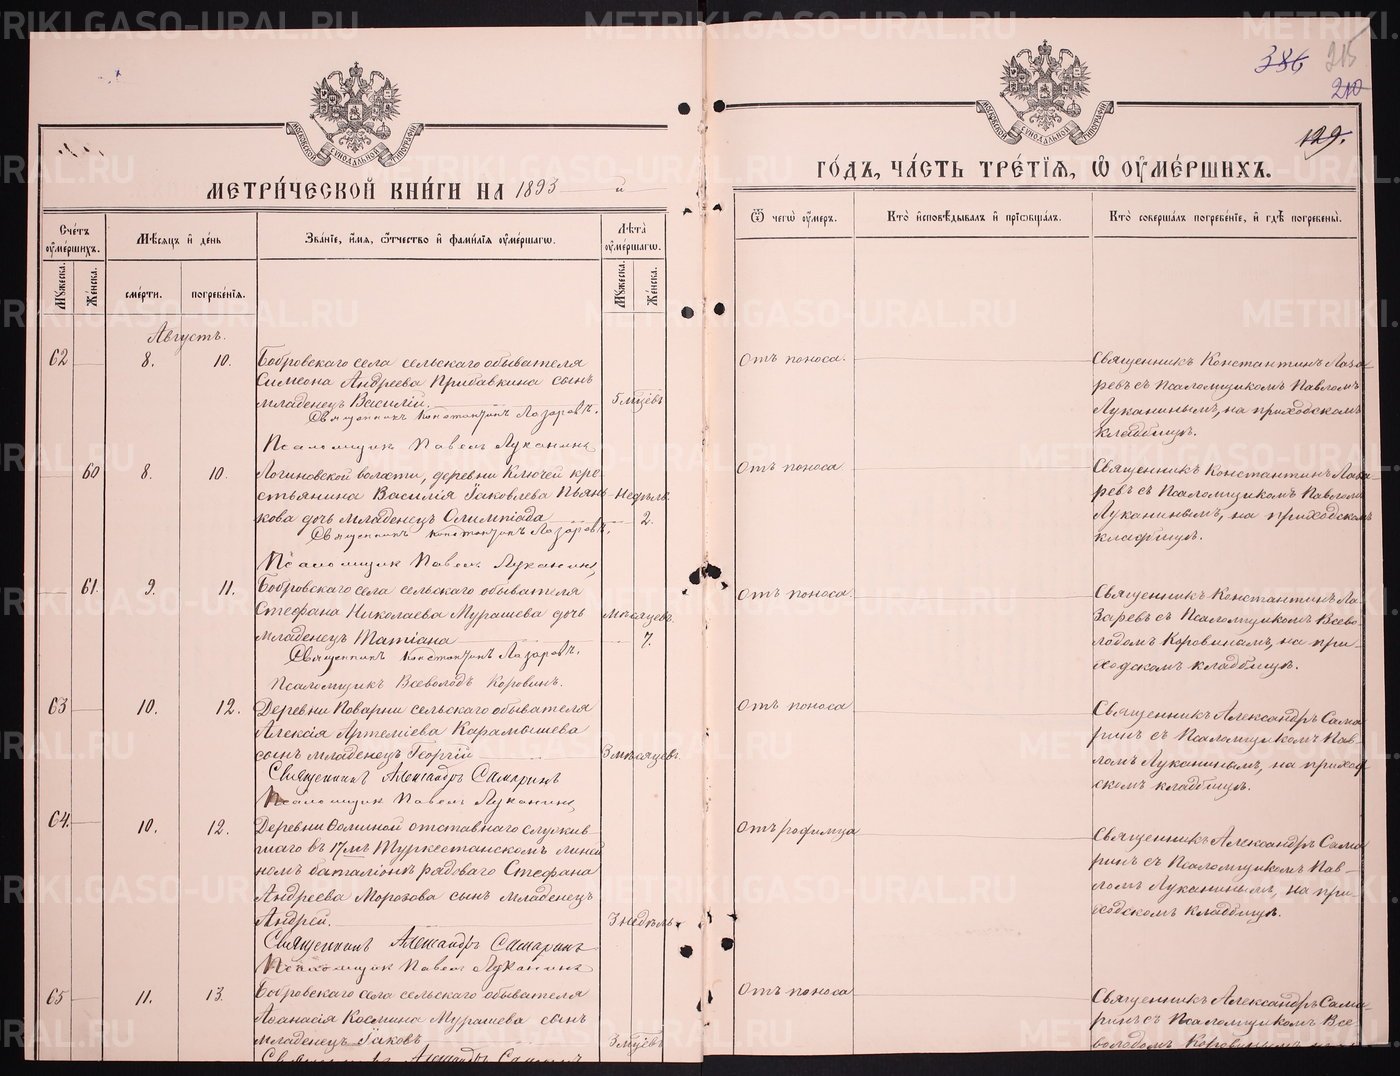 METRIKI.GASO-URAL.RU
386
215
210
129.
МОСКОВСКОЙ СѴНОДАЛЬНОЙ ТИПОГРАФІИ
МЕТРИ́ЧЕСКОЙ КНИ́ГИ НА 1893 й
ГО́ДЪ, ЧА́СТЬ ТРЕ́ТІЯ, Ѡ҆ ОУ҆МЕ́РШИХЪ.
Сче́тъ оу҆ме́ршихъ.
Мѣ́сяцъ и҆ де́нь
Зва́нїе, и҆́мя, ѻ҆́тчество и҆ фами́лїя оу҆ме́ршагѡ.
Лѣ́та оу҆ме́ршагѡ.
Му́жеска.
Же́нска.
сме́рти.
погребе́нїя.
Му́жеска.
Же́нска.
Ѿ чегѡ̀ оу҆́меръ.
Кто̀ и҆сповѣ́дывалъ и҆ прїѡбща́лъ.
Кто̀ соверша́лъ погребе́нїе, и҆ гдѣ̀ погребены̀.
Августъ.
62 8. 10. Бобровскаго села сельскаго обывателя
Симеона Андреева Прибавкина сынъ
младенецъ Василій. 5 мцевъ
Священникъ Константинъ Лазаревъ.
Псаломщик Павел Луканинъ
Отъ поноса.
Священникъ Константинъ Лаза
ревъ съ Псаломщикомъ Павломъ
Луканинымъ, на приходскомъ
кладбищѣ.
60 8. 10. Логиновской волости, деревни Ключей кре
стьянина Василія Іаковлева Пьян недѣль
кова дочь младенецъ Олимпіада 2.
Священникъ Константинъ Лазаревъ.
Псаломщик Павел Луканинъ
Отъ поноса
Священникъ Константинъ Лаза-
ревъ съ Псаломщикомъ Павломъ
Луканинымъ, на приходскомъ
кладбищѣ.
61. 9. 11. Бобровскаго села сельскаго обывателя
Стефана Николаева Мурашева дочь мѣсяцевъ.
младенецъ Татіана 7.
Священникъ Константинъ Лазаревъ.
Псаломщикъ Всеволодъ Коровинъ.
Отъ поноса.
Священникъ Константинъ Ла
заревъ съ Псаломщикомъ Всево-
лодомъ Коровинымъ, на при-
ходскомъ кладбищѣ.
63 10. 12. Деревни Поварни сельскаго обывателя
Алексія Артеміева Карамышева
сынъ младенецъ Георгій 3 мѣсяцевъ
Священникъ Александръ Самаринъ
Псаломщик Павел Луканинъ
Отъ поноса
Священникъ Александръ Сама
ринъ съ Псаломщикомъ Пав-
ломъ Луканинымъ, на приход
скомъ кладбищѣ.
64. 10. 12. Деревни отставнаго служив
шаго въ 17мъ Туркестанскомъ линей
номъ баталіонѣ рядоваго Стефана
Андреева Морозова сынъ младенецъ
Андрей. 3 недѣль.
Священникъ Александръ Самаринъ
Псаломщик Павел Луканинъ
Отъ родимца
Священникъ Александръ Сама
ринъ съ Псаломщикомъ Пав-
ломъ Луканинымъ, на при
ходскомъ кладбищѣ.
65 11. 13. Бобровскаго села сельскаго обывателя
Афанасія Космина Мурашева сынъ
младенецъ Іаковъ 3 мцевъ
Отъ поноса
Священникъ Александръ Сама-
ринъ съ Псаломщикомъ Все
володомъ Коровинымъ